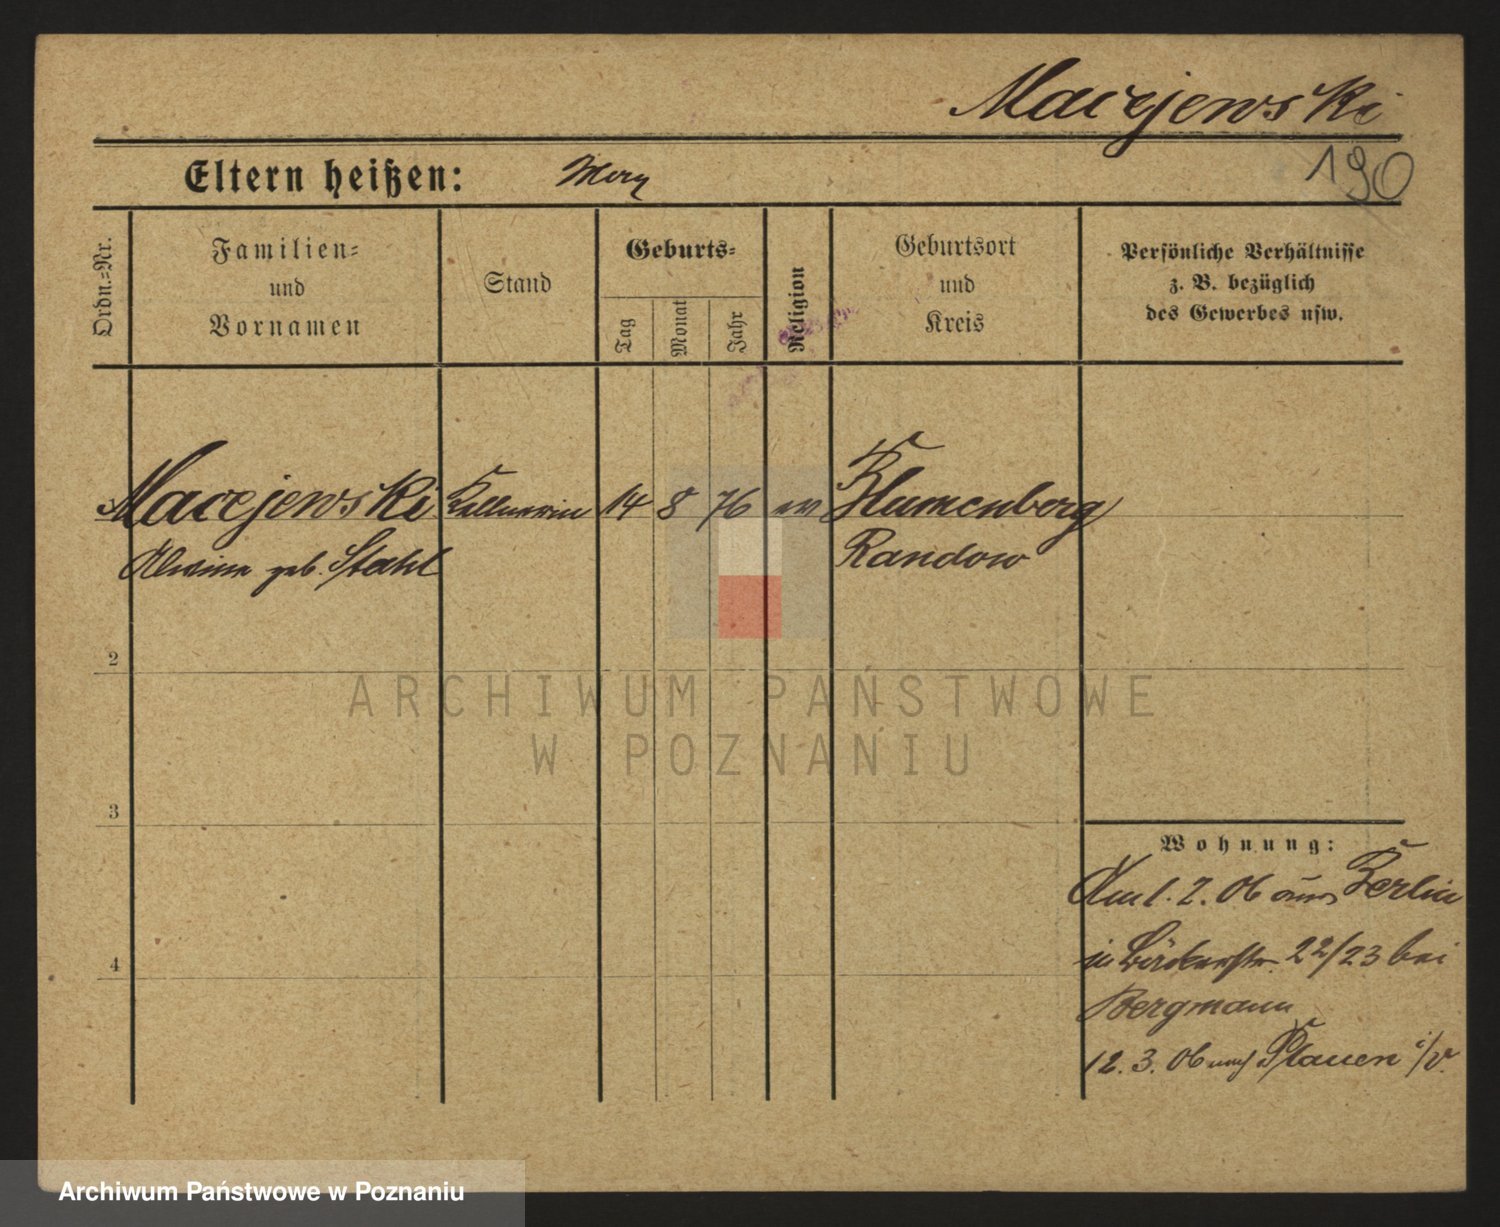 Macejewski
190
Eltern heißen:
Ordn.=Nr.
Familien=
und
Vornamen
Stand
Geburts=
Tag
Monat
Jahr
Religion
Geburtsort
und
Kreis
Persönliche Verhältnisse
z. B. bezüglich
des Gewerbes usw.
Macejewski Kellnerin 14 8 76 ev Blumenberg
Alwine geb. Stahl Randow
2
3
4
Wohnung:
Am 1. 2. 06 aus Berlin
in 22/23 bei
Bergmann
12. 3. 06 nach Plauen i/V.
ARCHIWUM PAŃSTWOWE
W POZNANIU
Archiwum Państwowe w Poznaniu